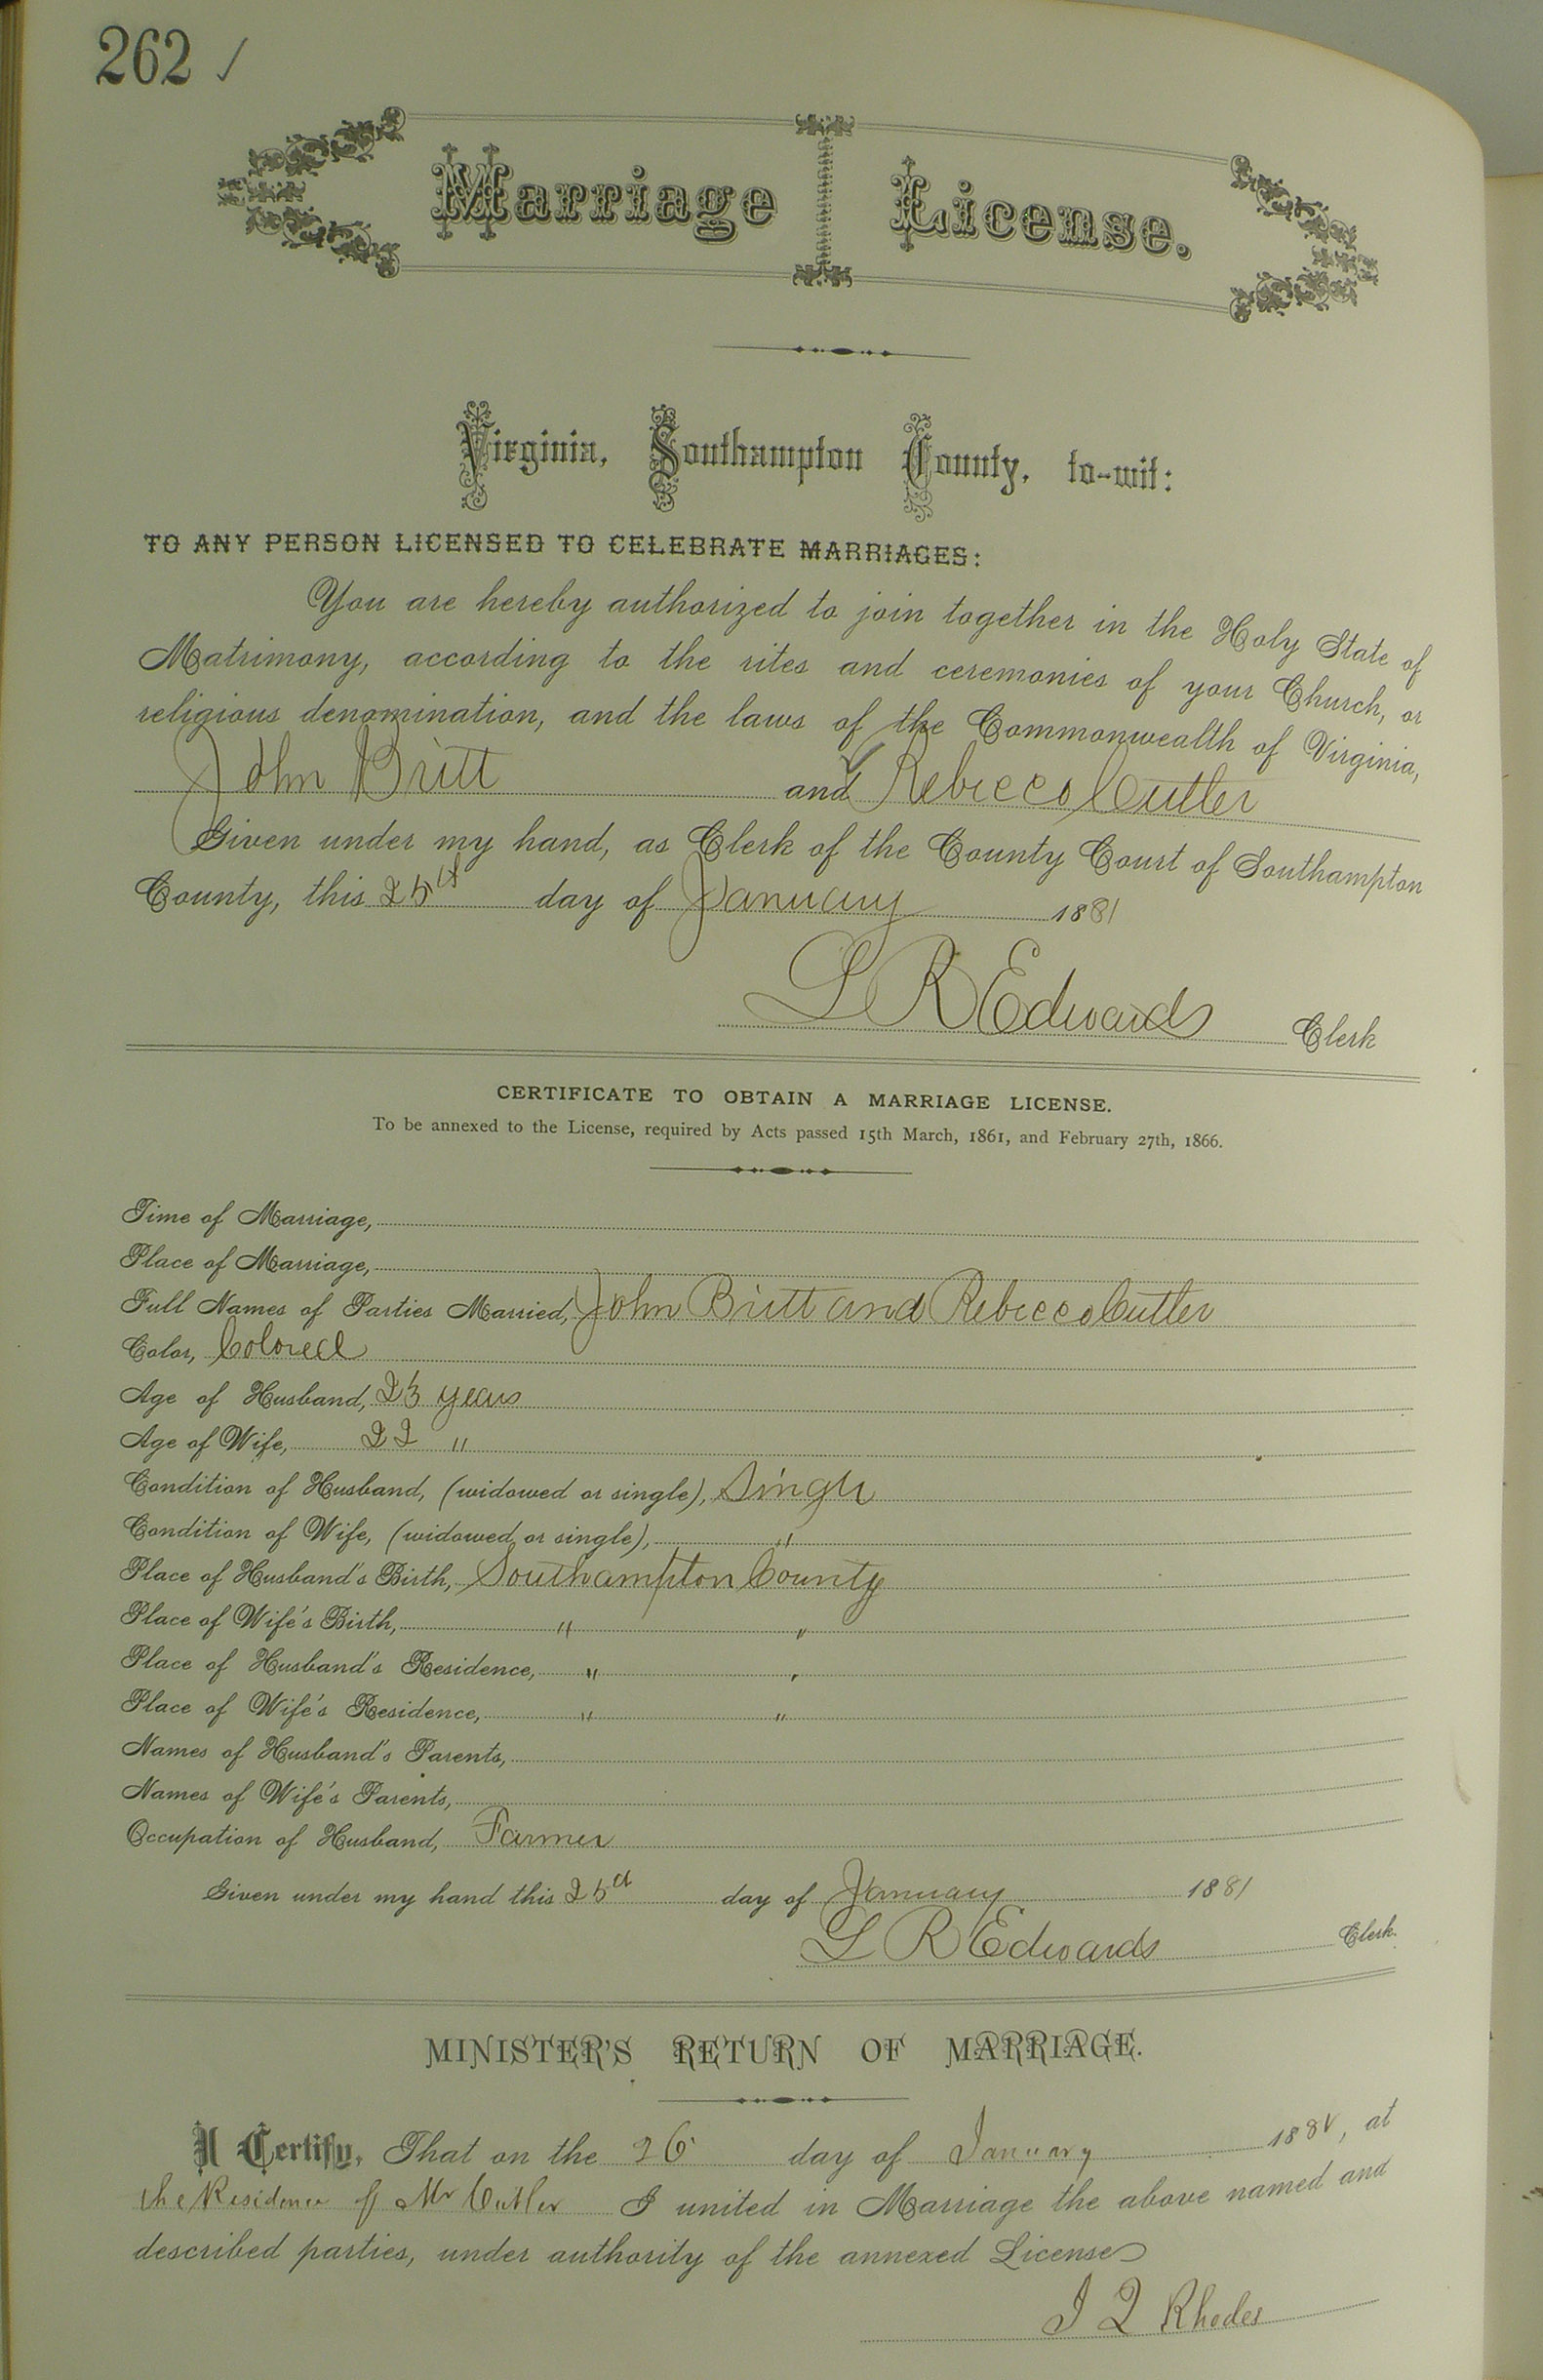 262 ✓
Marriage License.
Virginia, Southampton County, to-wit:
TO ANY PERSON LICENSED TO CELEBRATE MARRIAGES:
You are hereby authorized to join together in the Holy State of
Matrimony, according to the rites and ceremonies of your Church, or
religious denomination, and the laws of the Commonwealth of Virginia,
John Britt and Rebecca Cutler
Given under my hand, as Clerk of the County Court of Southampton
County, this 25th day of January 1881
L R Edwards Clerk
CERTIFICATE TO OBTAIN A MARRIAGE LICENSE.
To be annexed to the License, required by Acts passed 15th March, 1861, and February 27th, 1866.
Time of Marriage,
Place of Marriage,
Full Names of Parties Married, John Britt and Rebecca Cutler
Color, Colored
Age of Husband, 23 years
Age of Wife, 22 "
Condition of Husband, (widowed or single), Single
Condition of Wife, (widowed or single), "
Place of Husband's Birth, Southampton County
Place of Wife's Birth, " "
Place of Husband's Residence, " "
Place of Wife's Residence, " "
Names of Husband's Parents,
Names of Wife's Parents,
Occupation of Husband, Farmer
Given under my hand this 25th day of January 1881
L R Edwards Clerk.
MINISTER'S RETURN OF MARRIAGE.
I Certify, That on the 26 day of January 1881, at
the Residence of Mr Cutler I united in Marriage the above named and
described parties, under authority of the annexed License
Rhodes